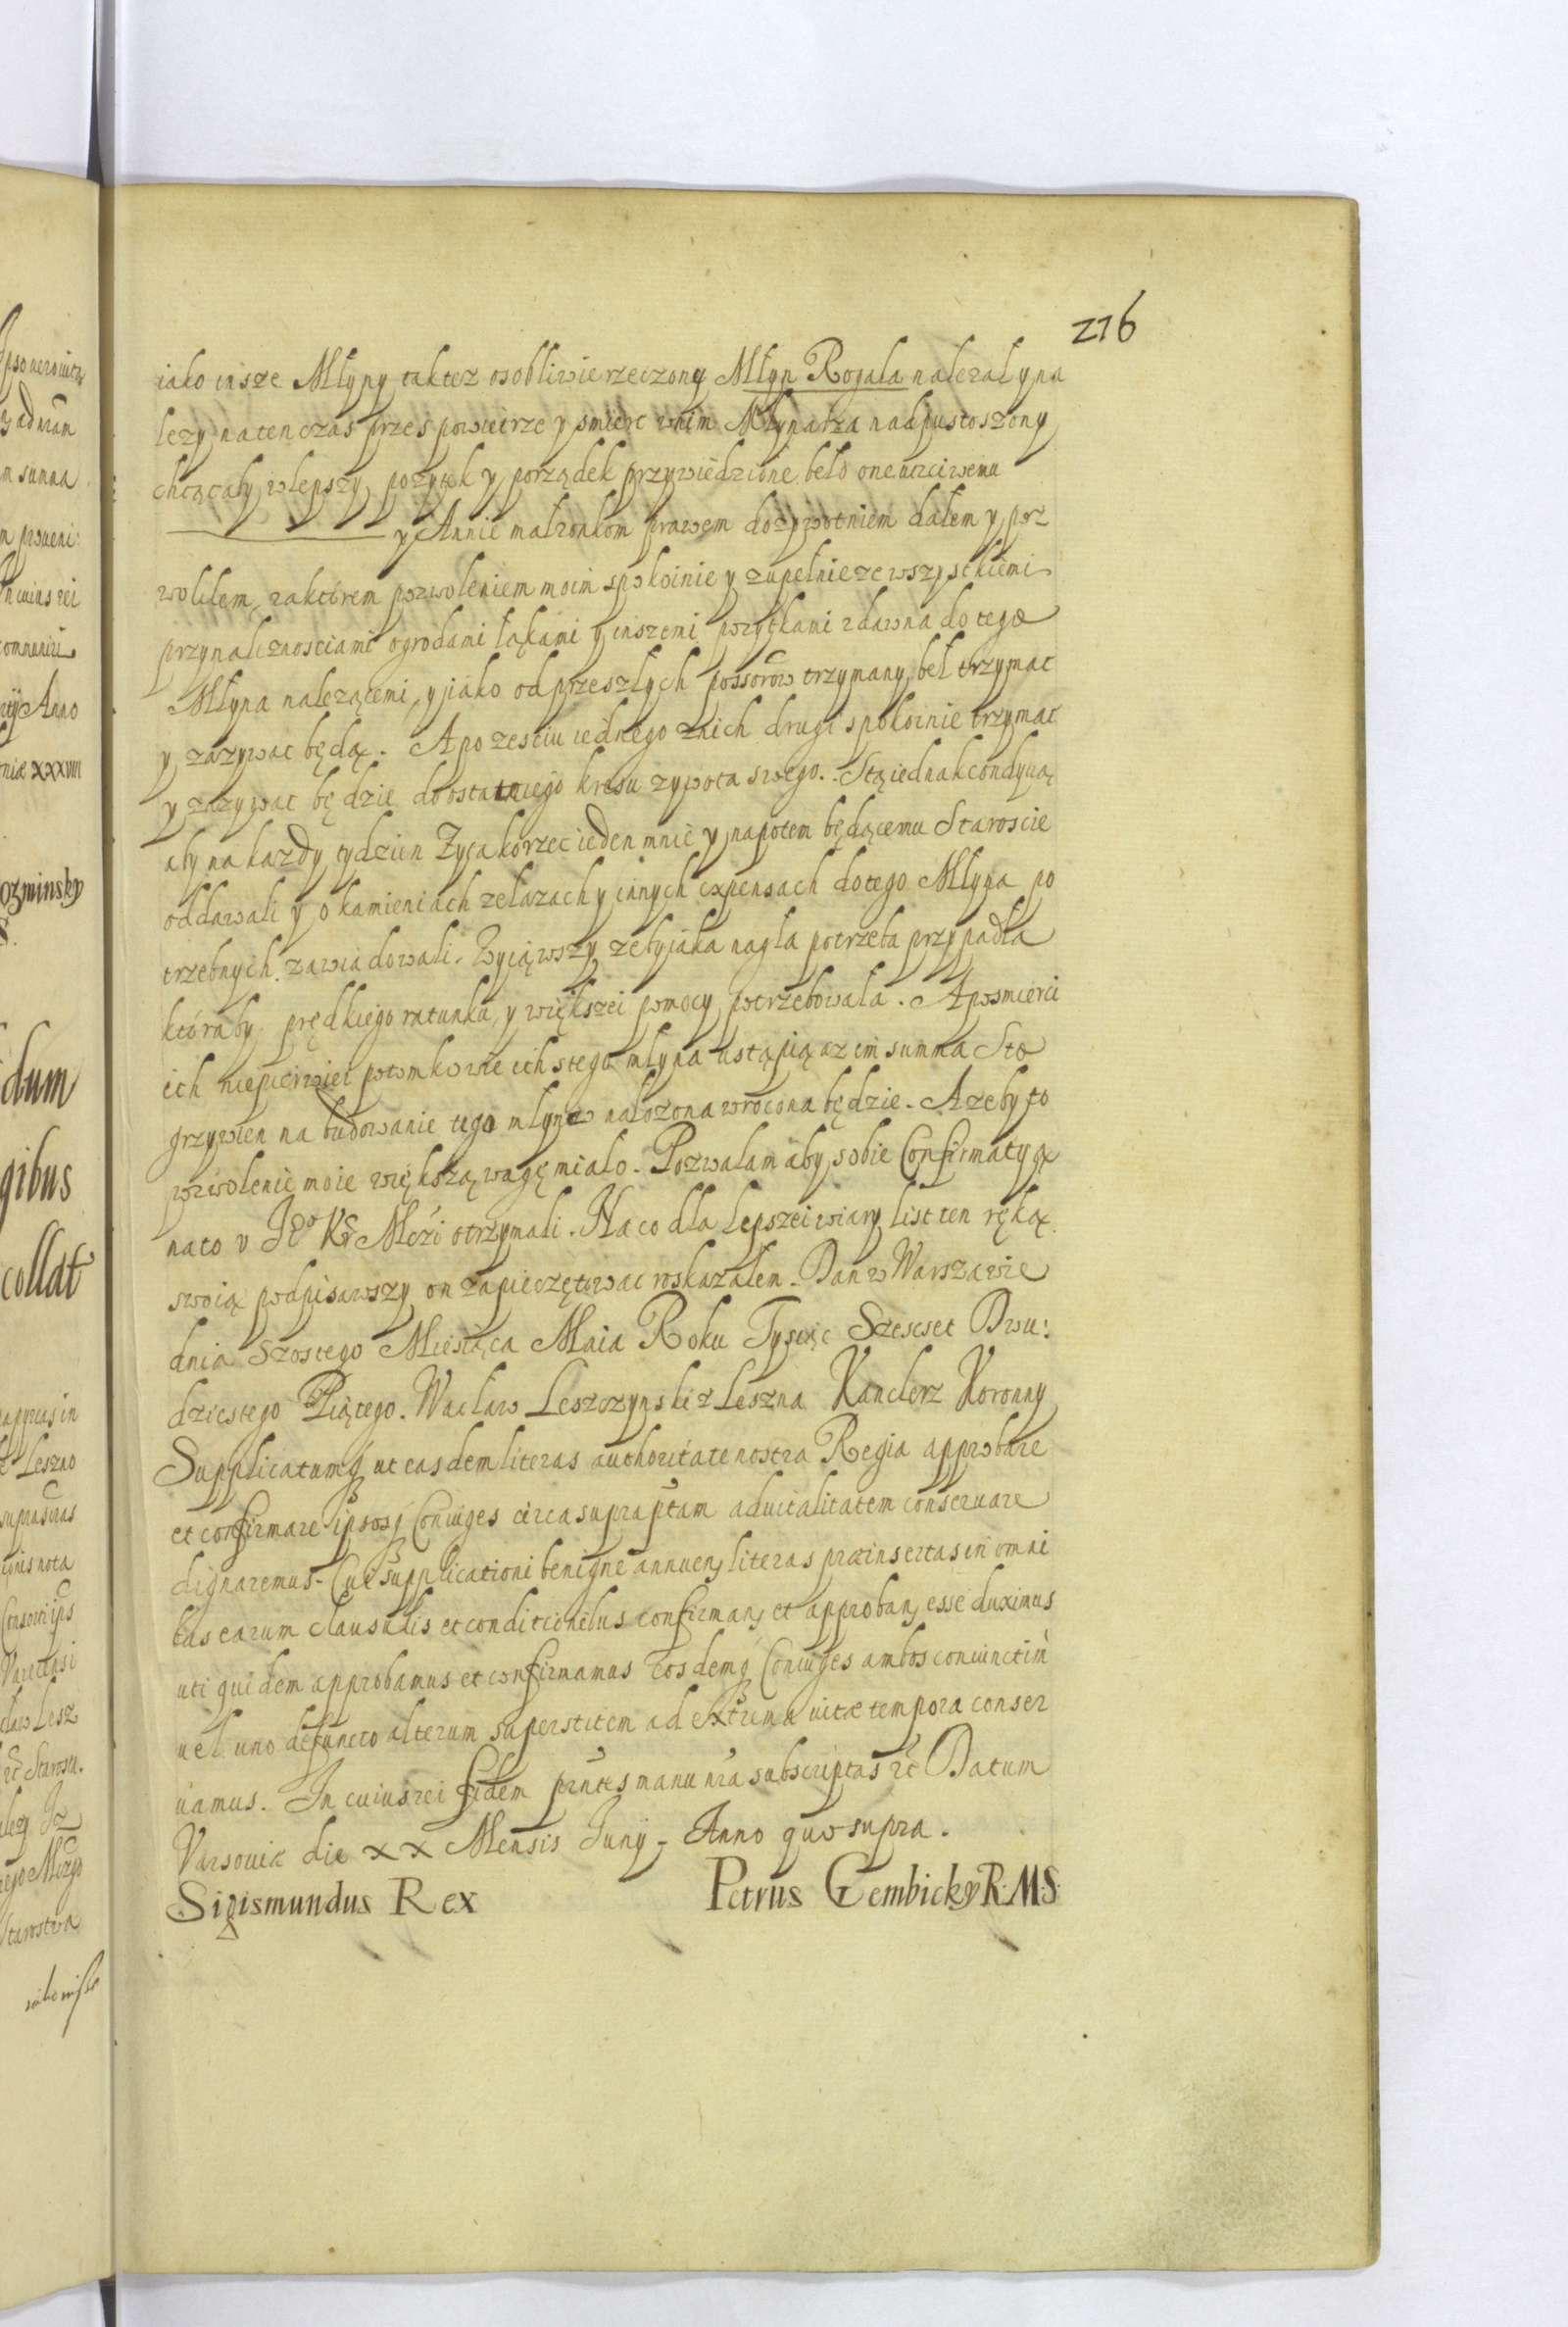 216
iako insze Młyny taktez osobliwie rzeczony Młyn Rogala nalezal y na
lezy na ten czas przes powietrze y smierc wnim Młynarza nadpustoszony
chcąc aby wlepszy pozytek y porządek przywiedzione beło one uczciwemu
y Annie malzonkom prawem dozywotniem dałem y poz
woliłem, za ktorem pozwoleniem moim spokoinie y zupełnie ze wszysckiemi
przynaleznosciami ogrodami łąkami y inszemi pozytkami zdawna do tego
Młyna nalezącemi, y iako od przeszłych possorów trzymany beł trzymac
y zazywac będą. A po zesciu iednego znich drugi spokoinie trzymac
y zazywac będzie do ostatniego kresu zywota swego. Stą iednak condycią
aby na kazdy tydzien Zyta korzec ieden mnie y napotem będącemu Staroscie
oddawali y o kamieniach zelazach y innych expensach do tego Młyna po
trzebnych zawiadowali. Wyiąwszy zeby iaka nagla potrzeba przypadła
któraby prędkiego ratunku y większei pomocy potrzebowala. A po smierci
ich niepierwiei potomkowie ich stego młyna ustąpią az im summa Sto
grzywien na budowanie tego młynow nałozona wrocona będzie. A zeby to
pozwolenie moie większą wagę miało. Pozwalam aby sobie Confirmatyą
na to v Je° Kr Mczi otrzymali. Na co dla lepszei wiary list ten ręką
swoią podpisawszy on zapieczętowac roskazałem. Dan w Warszawie
dnia Szostego Miesiąca Maia Roku Tysiąc Szescset Dwu:
dziestego Piątego. Wacław Leszczynski z Leszna Kanclerz Koronny
Supplicatumq ut easdem literas authoritate nostra Regia approbare
et confirmare ipsosq Coniuges circa supraptam aduitalitatem conseruare
dignaremus. Cui supplicationi benigne annuen literas præinsertas in omni
bus earum clausulis et conditionibus confirman et approban esse duximus
uti quidem approbamus et confirmamus Eosdemq Coniuges ambos coniunctim
uel uno defuncto alterum superstitem ad extrema uitæ tempora conser
uamus. In cuius rei fidem pntes manu nra subscriptas et Datum
Varsouiæ die xx Mensis Junÿ. Anno quo supra.
Sigismundus Rex Petrus Gembicky R.M.S